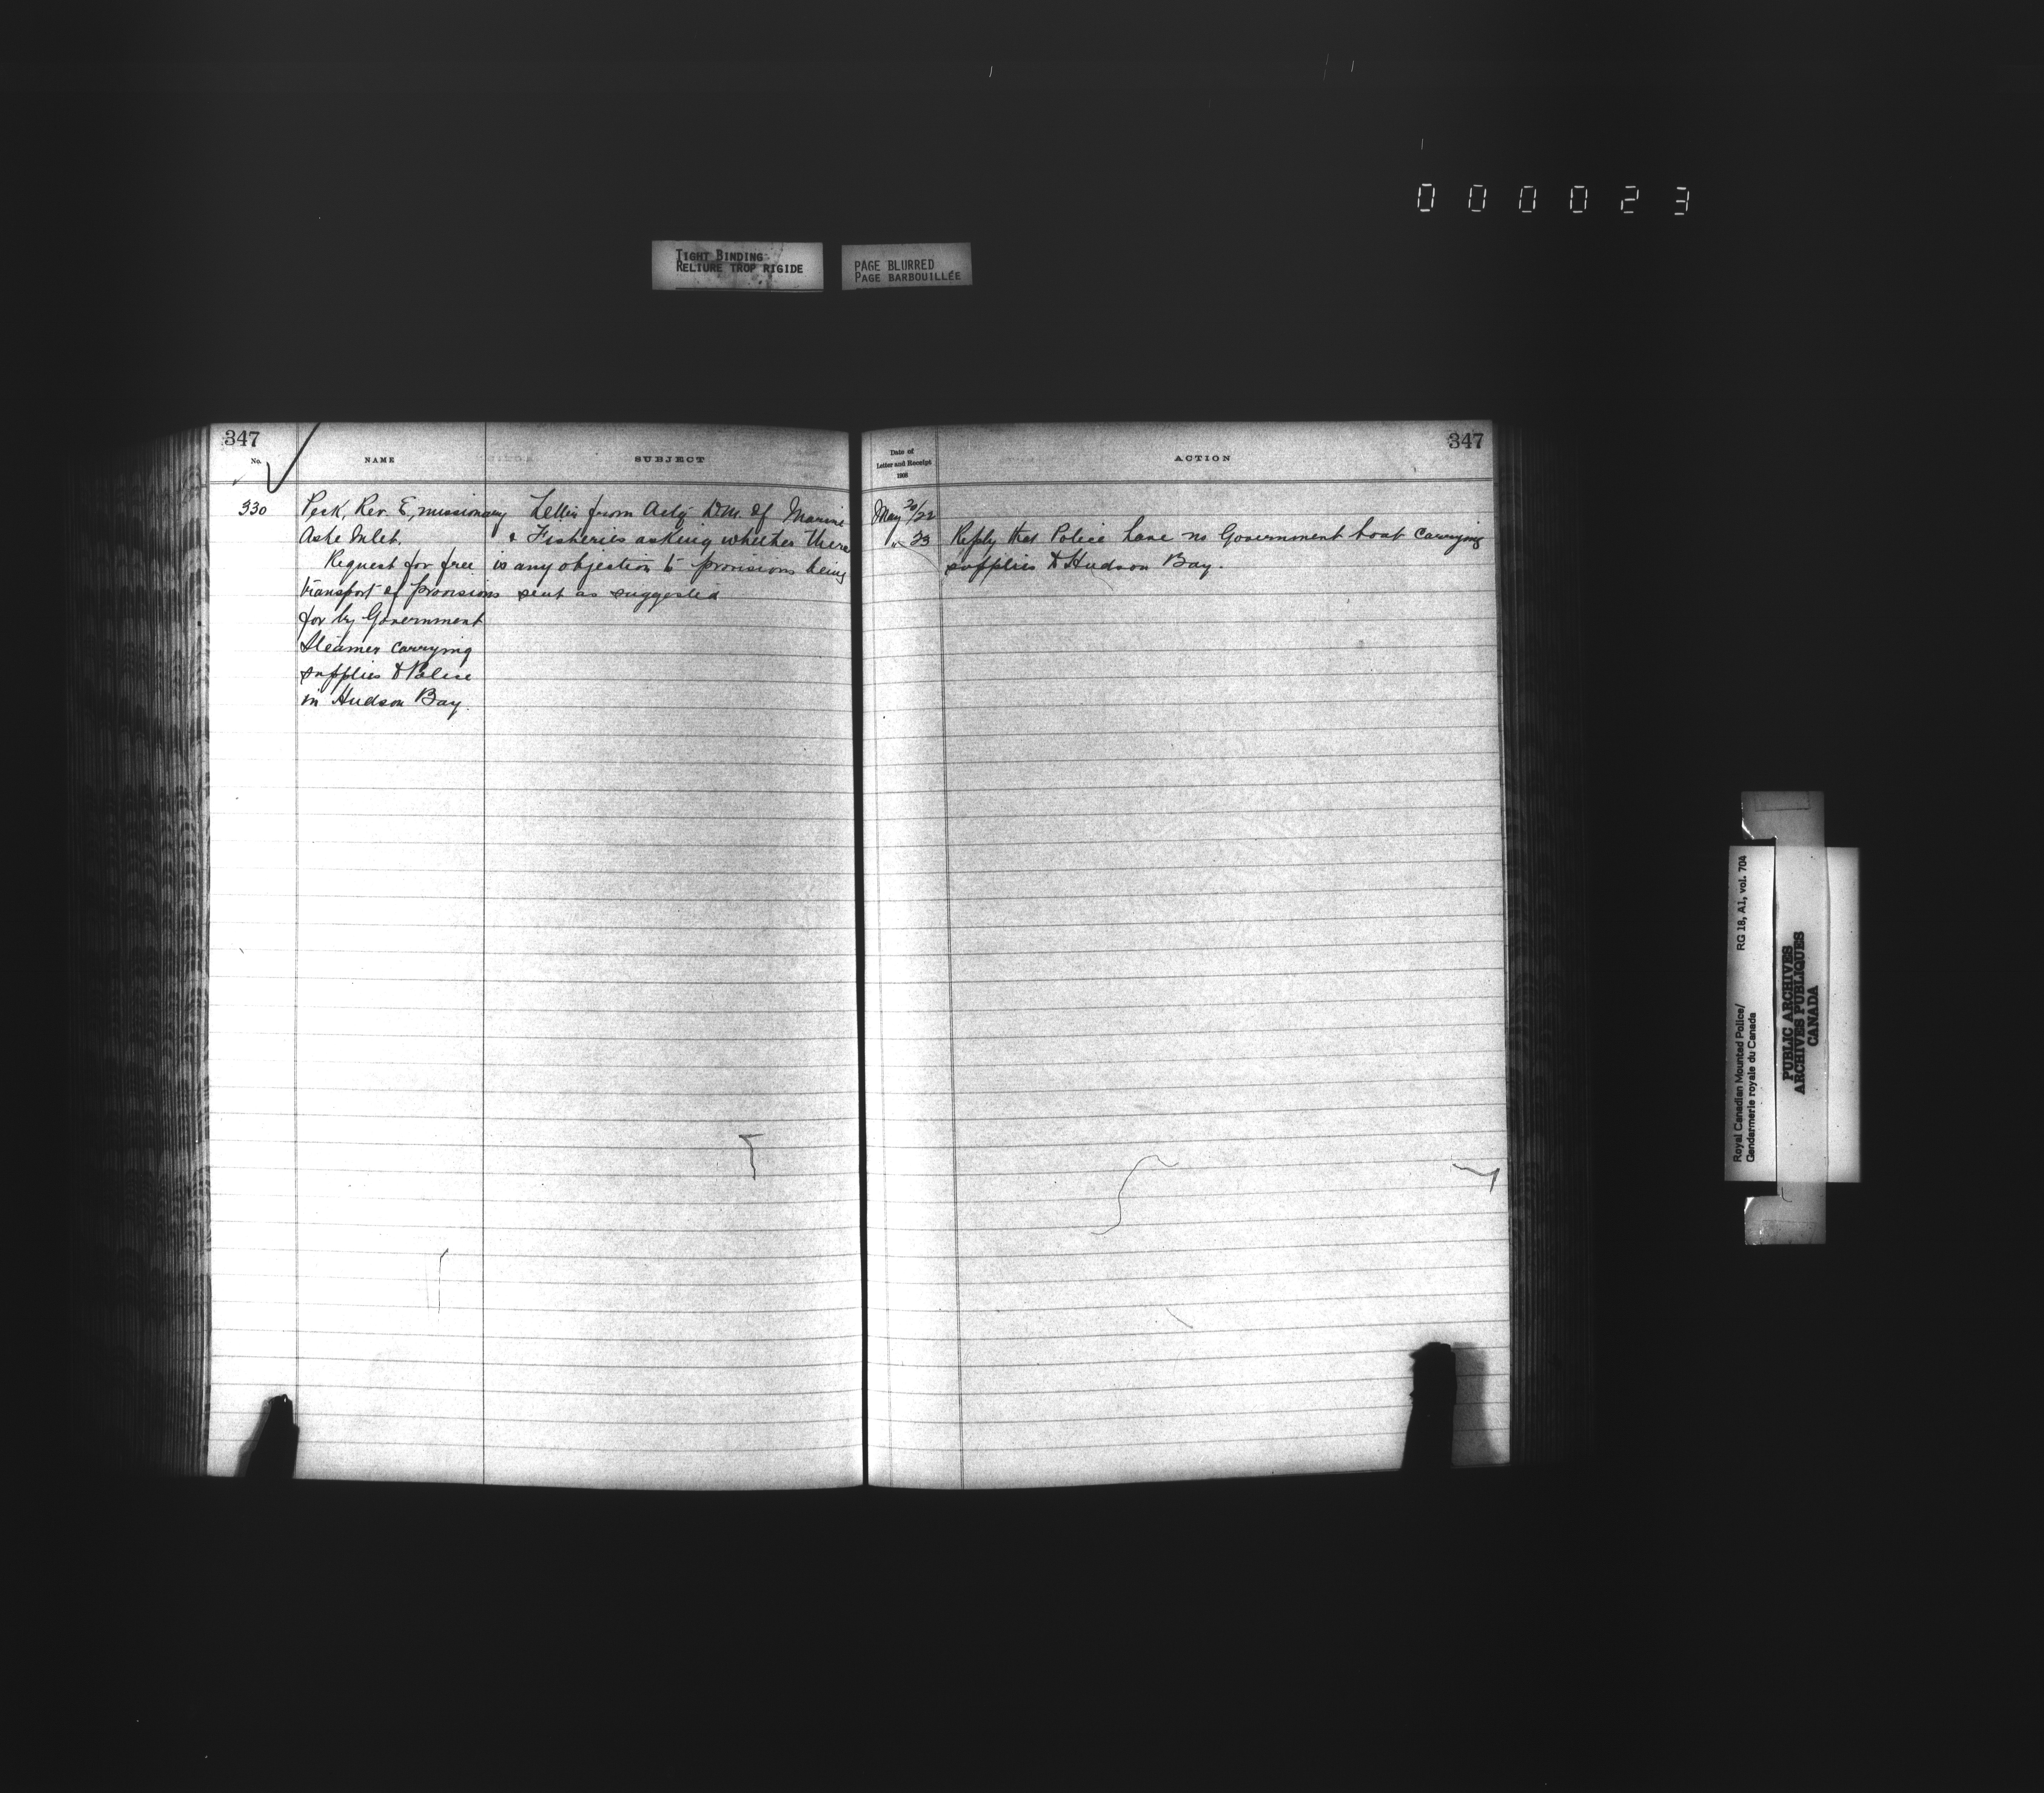 000023
TIGHT BINDING
RELIURE TROP RIGIDE
PAGE BLURRED
PAGE BARBOUILLÉE
347
No.
NAME
SUBJECT
330
Peck, Rev. E, missionary
Ashe Inlet.
Request for free
transport of provisions
for by Government
Steamer carrying
supplies to Police
in Hudson Bay.
Letter from Actg D.M. of Marine
& Fisheries asking whether there
is any objection to provisions being
sent as suggested
347
Date of
Letter and Receipt
1905
ACTION
May 20/22
" 23
Reply that Police have no Government boat carrying
supplies to Hudson Bay.
Royal Canadian Mounted Police/
Gendarmerie royale du Canada
RG 18, A1, vol. 704
PUBLIC ARCHIVES
ARCHIVES PUBLIQUES
CANADA